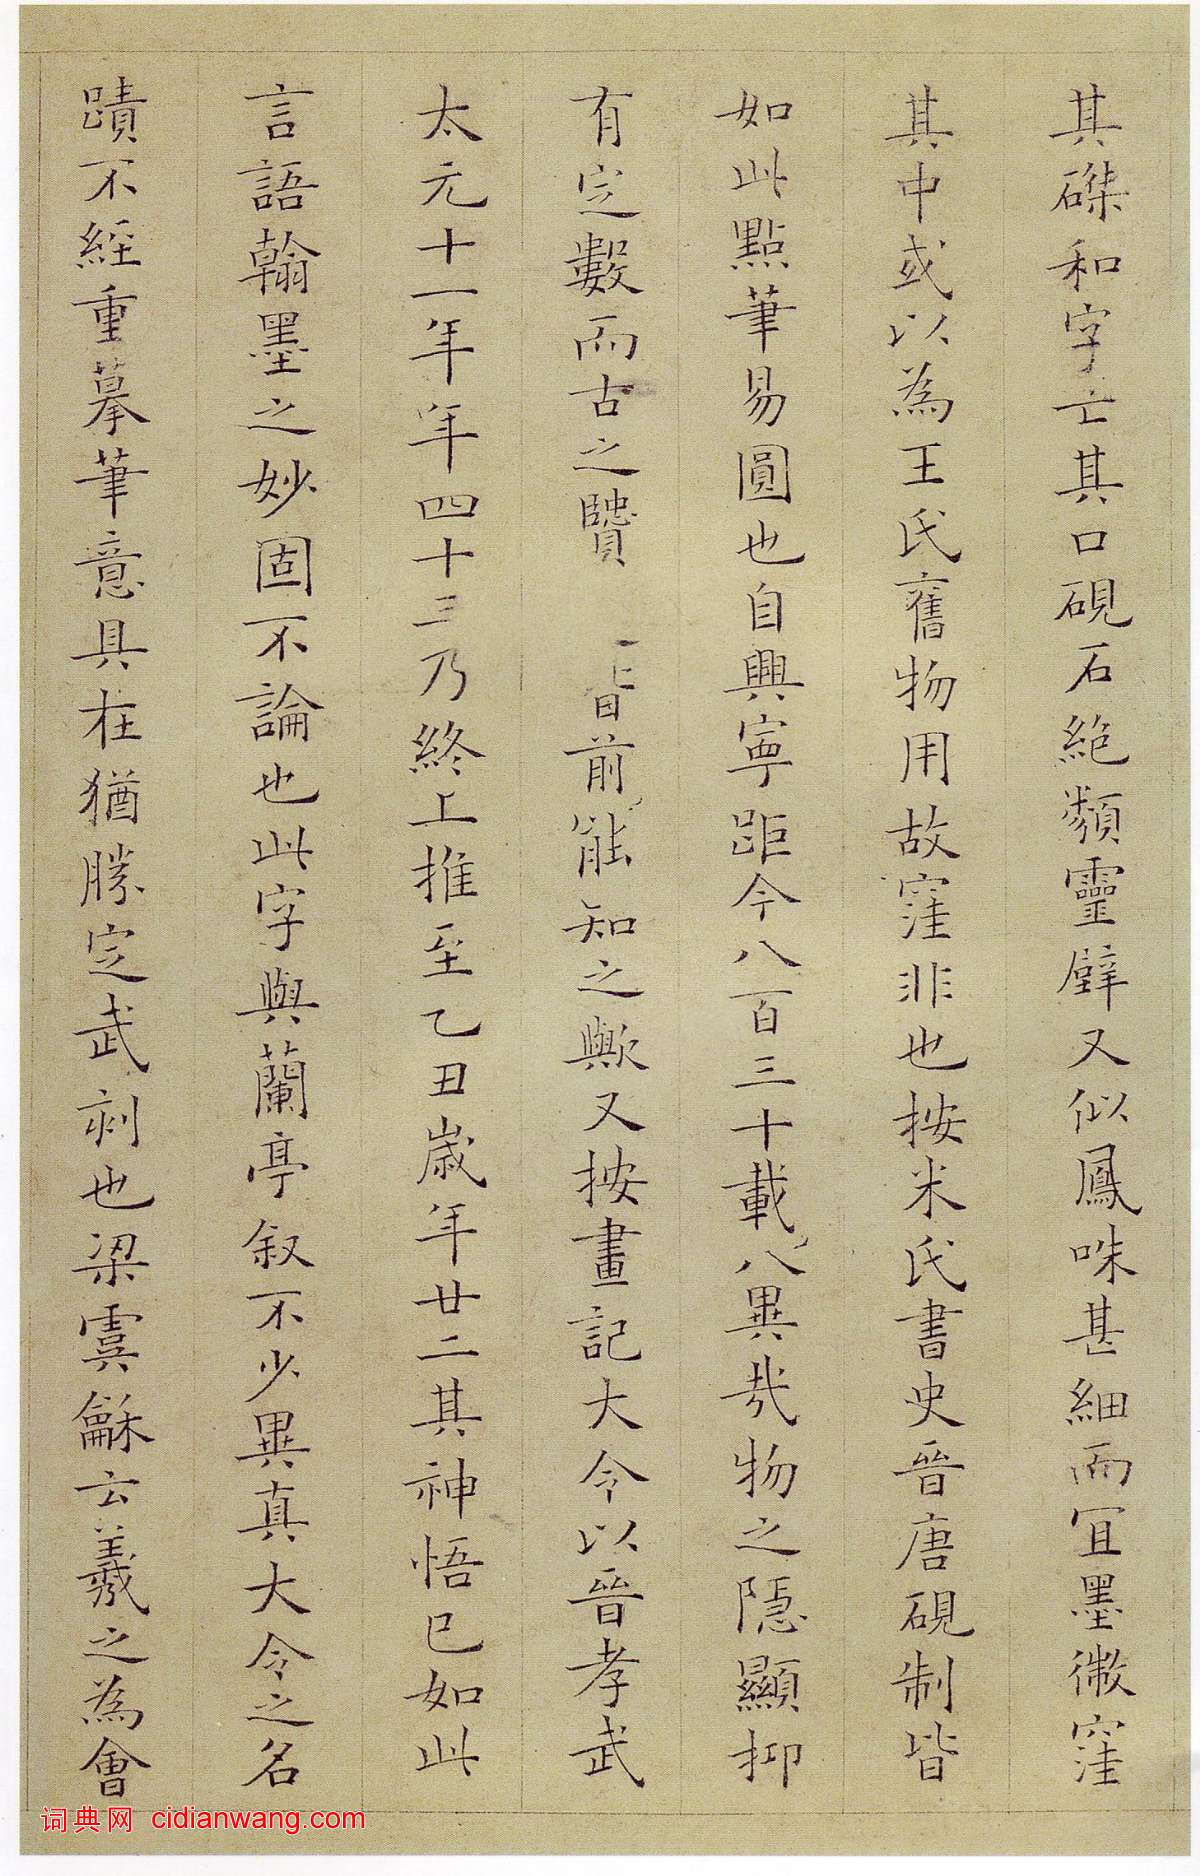 其磔和字亡其口硯石絶類靈璧又似鳳咮甚細而宜墨微窪
其中或以為王氏舊物用故窪非也按米氏書史晉唐硯制皆
如此點筆易圓也自興寧距今八百三十載八異哉物之隱顯抑
有定數而古之賢皆前能知之歟又按畫記大令以晉孝武
太元十一年年四十三乃終上推至乙丑歲年廿二其神悟已如此
言語翰墨之妙固不論也此字與蘭亭叙不少異真大令之名
蹟不經重摹筆意具在猶勝定武刻也梁虞龢云羲之為會
词典网 cidianwang.com